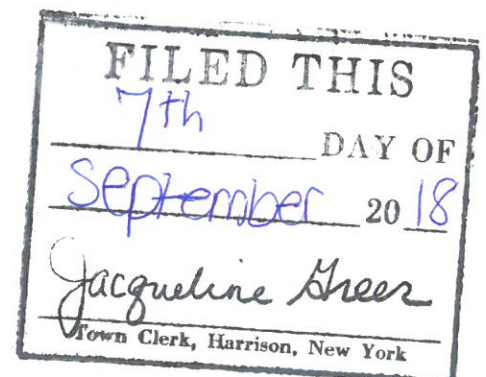 FILED THIS
7th
DAY OF
September 20 18
Jacqueline Greer
Town Clerk, Harrison, New York